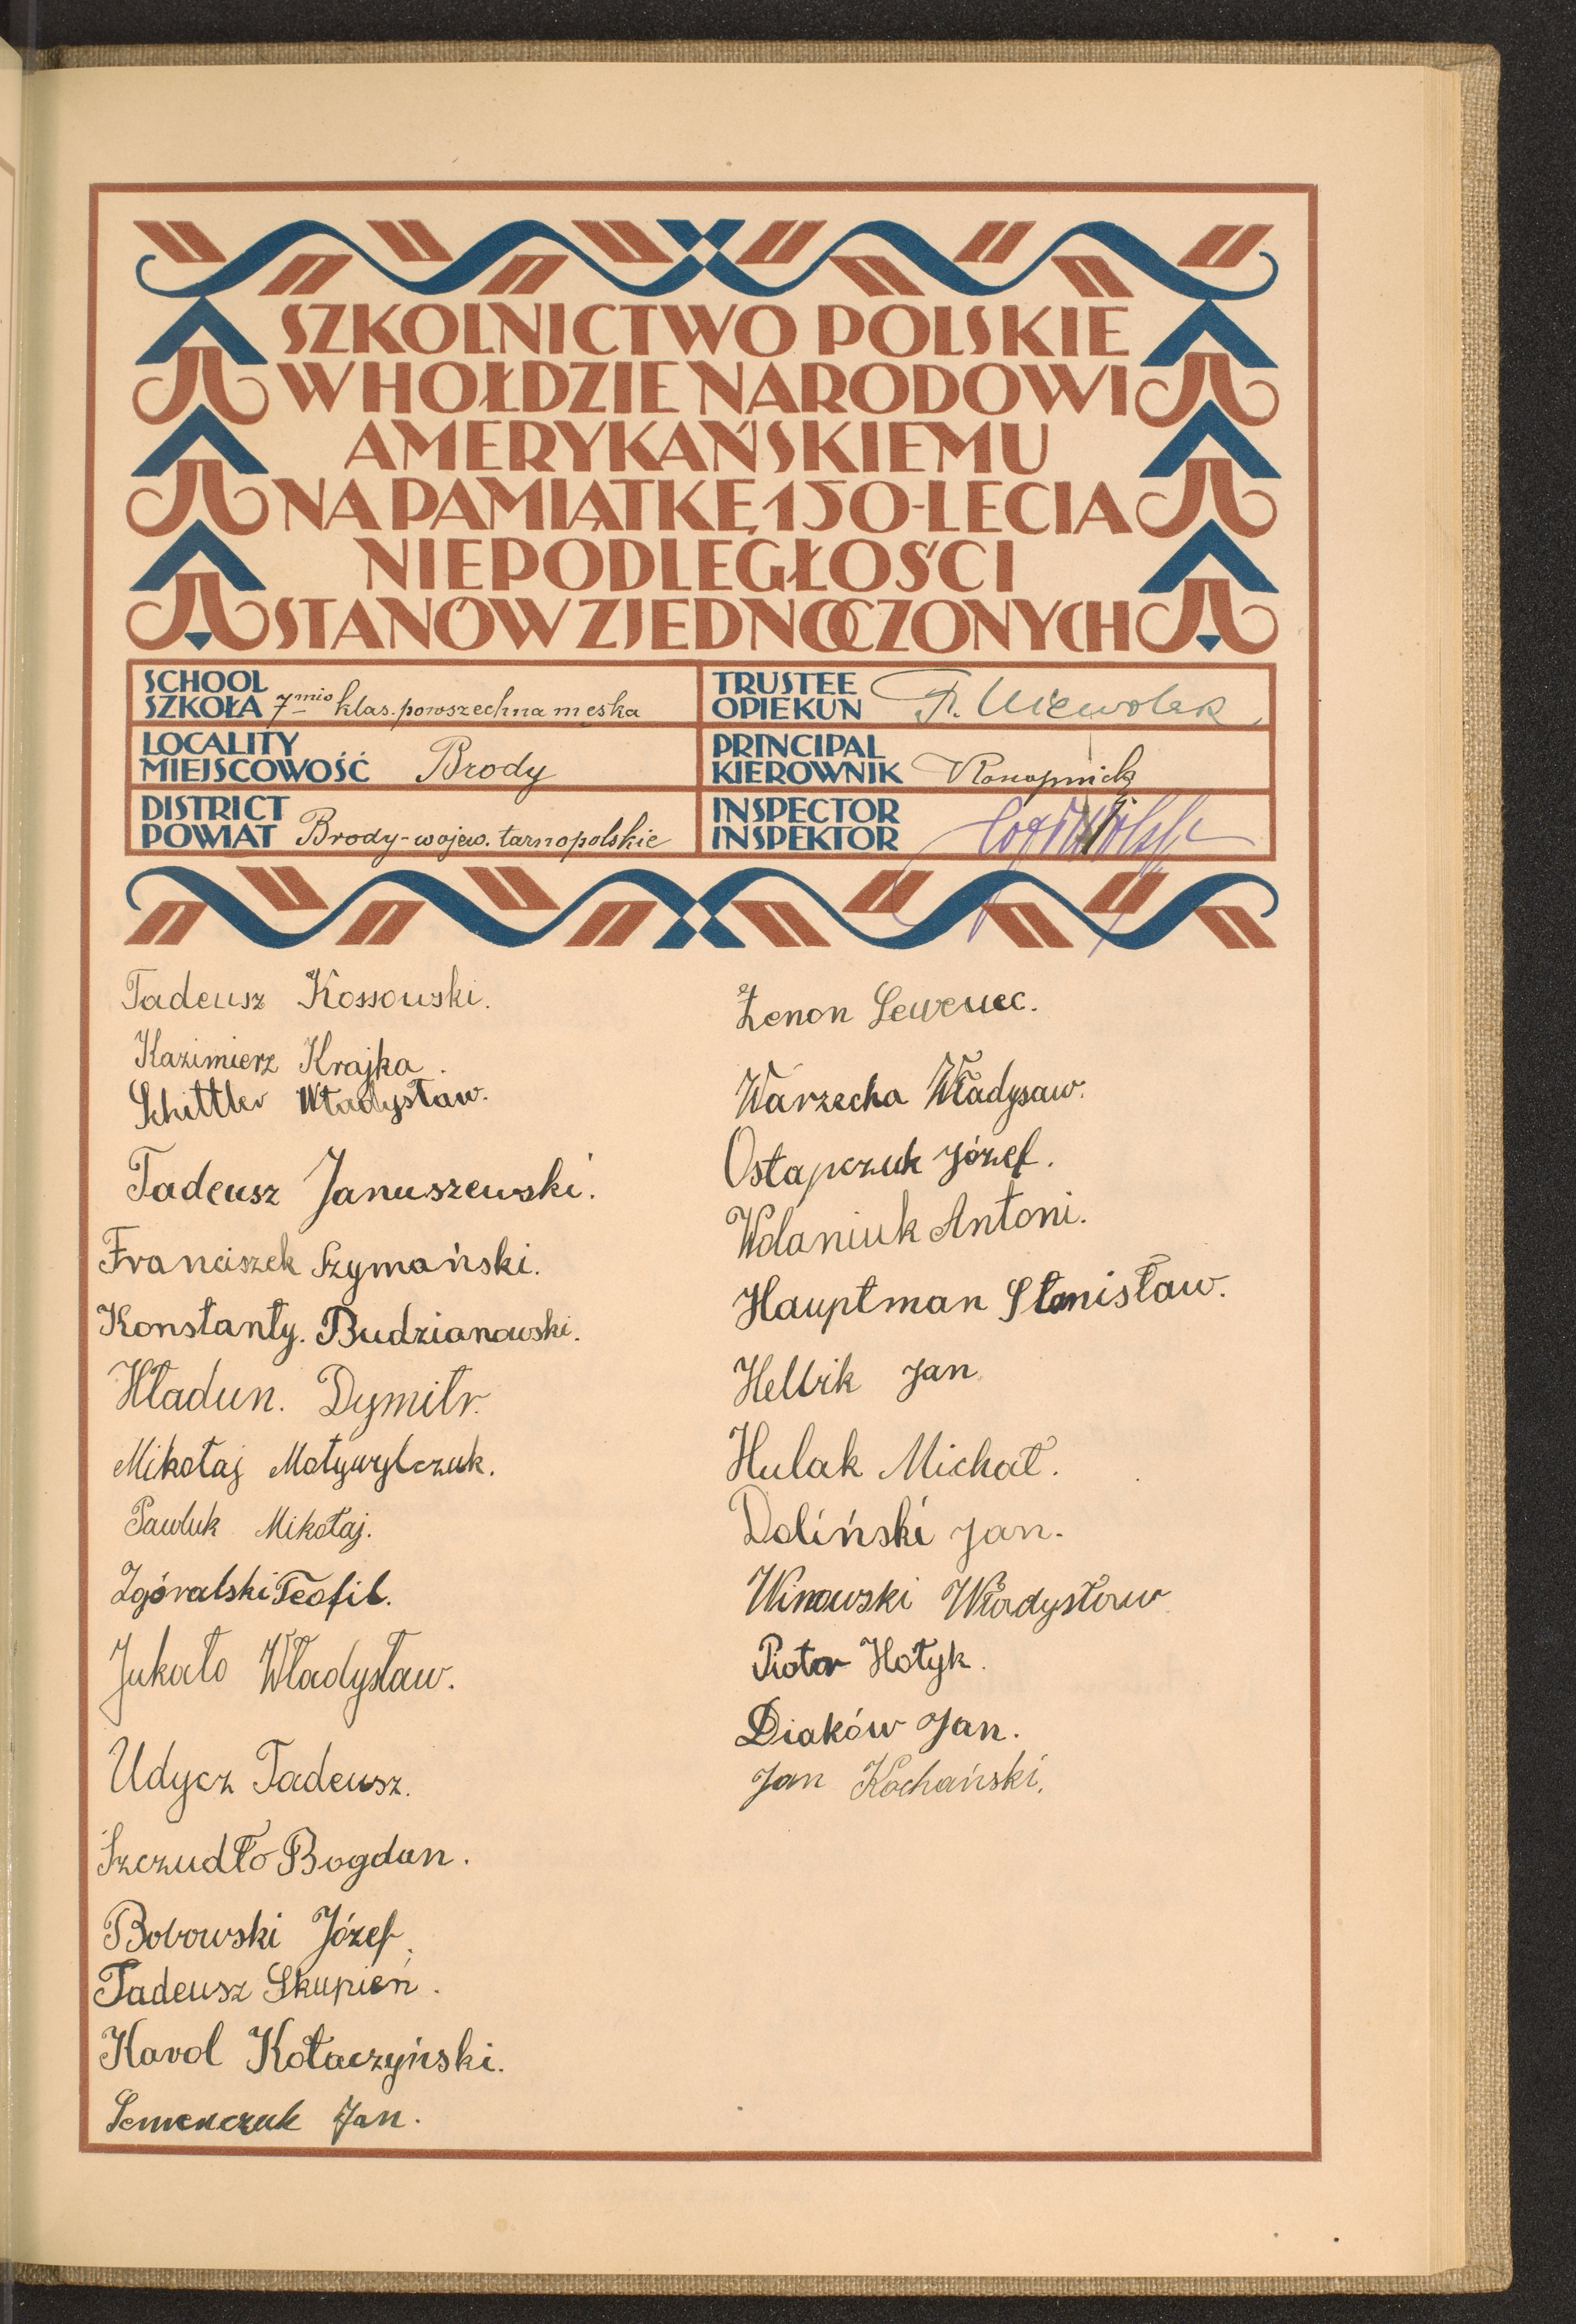 SZKOLNICTWO POLSKIE
W HOŁDZIE NARODOWI
AMERYKAŃSKIEMU
NA PAMIĄTKĘ 150-LECIA
NIEPODLEGŁOŚCI
STANÓW ZJEDNOCZONYCH
SCHOOL
SZKOŁA 7mio klas. powszechna męska
LOCALITY
MIEJSCOWOŚĆ Brody
DISTRICT
POWIAT Brody-wojew. tarnopolskie
TRUSTEE
OPIEKUN
PRINCIPAL
KIEROWNIK Konopnicki
INSPECTOR
INSPEKTOR
Tadeusz Kossowski.
Kazimierz Krajka.
Schittler Władysław.
Tadeusz Januszewski.
Franciszek Szymański.
Konstanty. Budzianowski.
Hładun. Dymitr.
Mikołaj Motywylczuk.
Pawluk Mikołaj.
Zgóralski Teofil.
Jukało Władysław.
Udycz Tadeusz.
Szczudło Bogdan.
Bobowski Józef.
Tadeusz Skupień.
Karol Kołaczyński.
Semenczuk Jan.
Zenon
Warzecha Władysaw.
Ostapczuk Józef.
Wolaniuk Antoni.
Hauptman Stanisław.
Helbik Jan
Hulak Michał.
Doliński Jan.
Winowski Władysław
Piotr Hołyk.
Diaków Jan.
Jan Kochański.